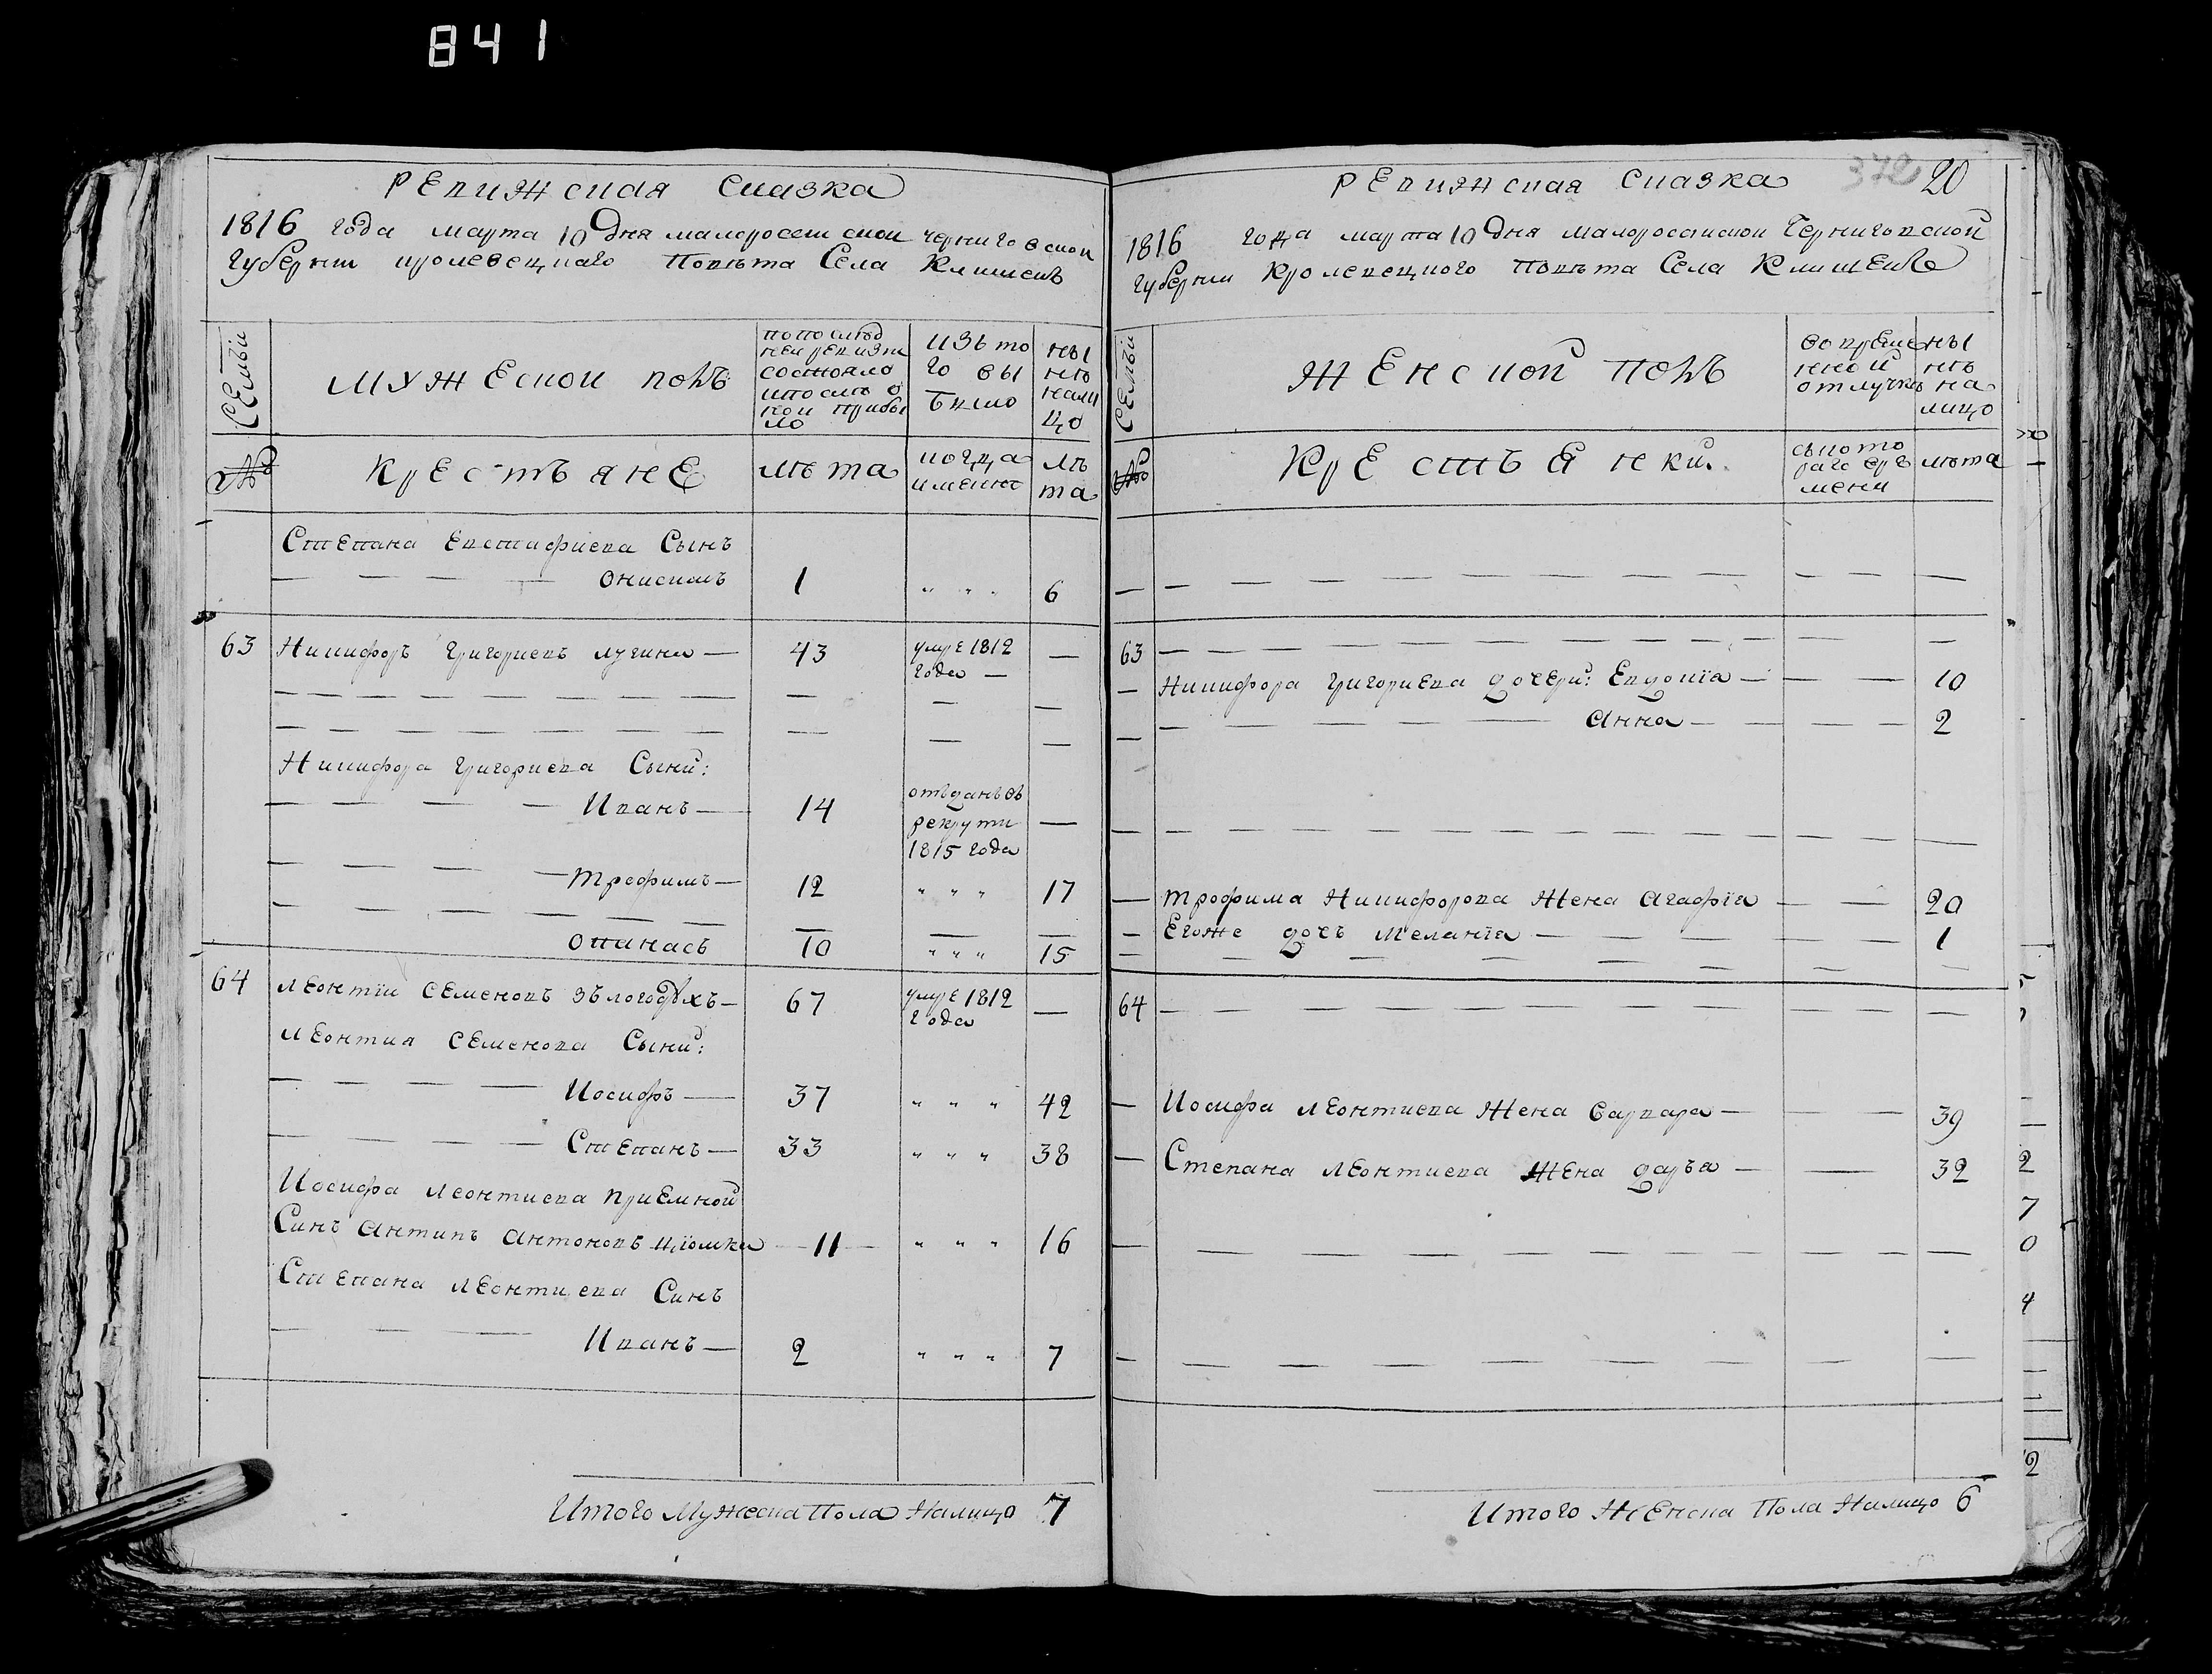 841
Ревижская Сказка
1816 года марта 10 Дня малоросейской черниговской
Губернии кролевецкаго Повѣта Села Клишекъ
Семьи
мужеской полъ
по послѣд
ней ревизии
состояло
и послѣ о
ной прибы
ло
изъ то
го вы
было
ны
нѣ
нали
цо
№
крестьяне
лѣта
когда
именно
лѣ
та
Степана Евстафиева Сынъ
Онисимъ 1 " " " 6
63 Никифоръ Григориевъ лугина 43 умре 1812
года
Никифора Григориева Сыни:
Иванъ 14 отъданъ въ
рекрути
1815 года
Трофимъ 12 " " " 17
Опанасъ 10 " " " 15
64 Леонтии Семеновъ 67 умре 1812
года
Леонтия Семенова Сыни:
Иосифъ 37 " " " 42
Степанъ 33 " " " 38
Иосифа Леонтиева приемной
Синъ Антипъ Антоновъ 11 " " " 16
Степана Леонтиева Синъ
Иванъ 2 " " " 7
Итого Мужеска Пола Налицо 7
Ревижская Сказка 372 20
1816 года марта 10 Дня малороссийской Черниговской
губернии Кролевецкого Повѣта Села Клишекъ
Семьи
женской полъ
во време
нной
отлучкѣ
ны
нѣ
на
лицо
№
Крестьянки
съ кото
раго вре
мени
лѣта
63
Никифора Григориева дочери: Евдокїа 10
Анна 2
Трофима Никифорова Жена Агафїа 20
Егоже дочь Меланїа 1
64
Иосифа Леонтиева Жена Варвара 39
Степана Леонтиева Жена Дарья 32
Итого Женска Пола Налицо 6